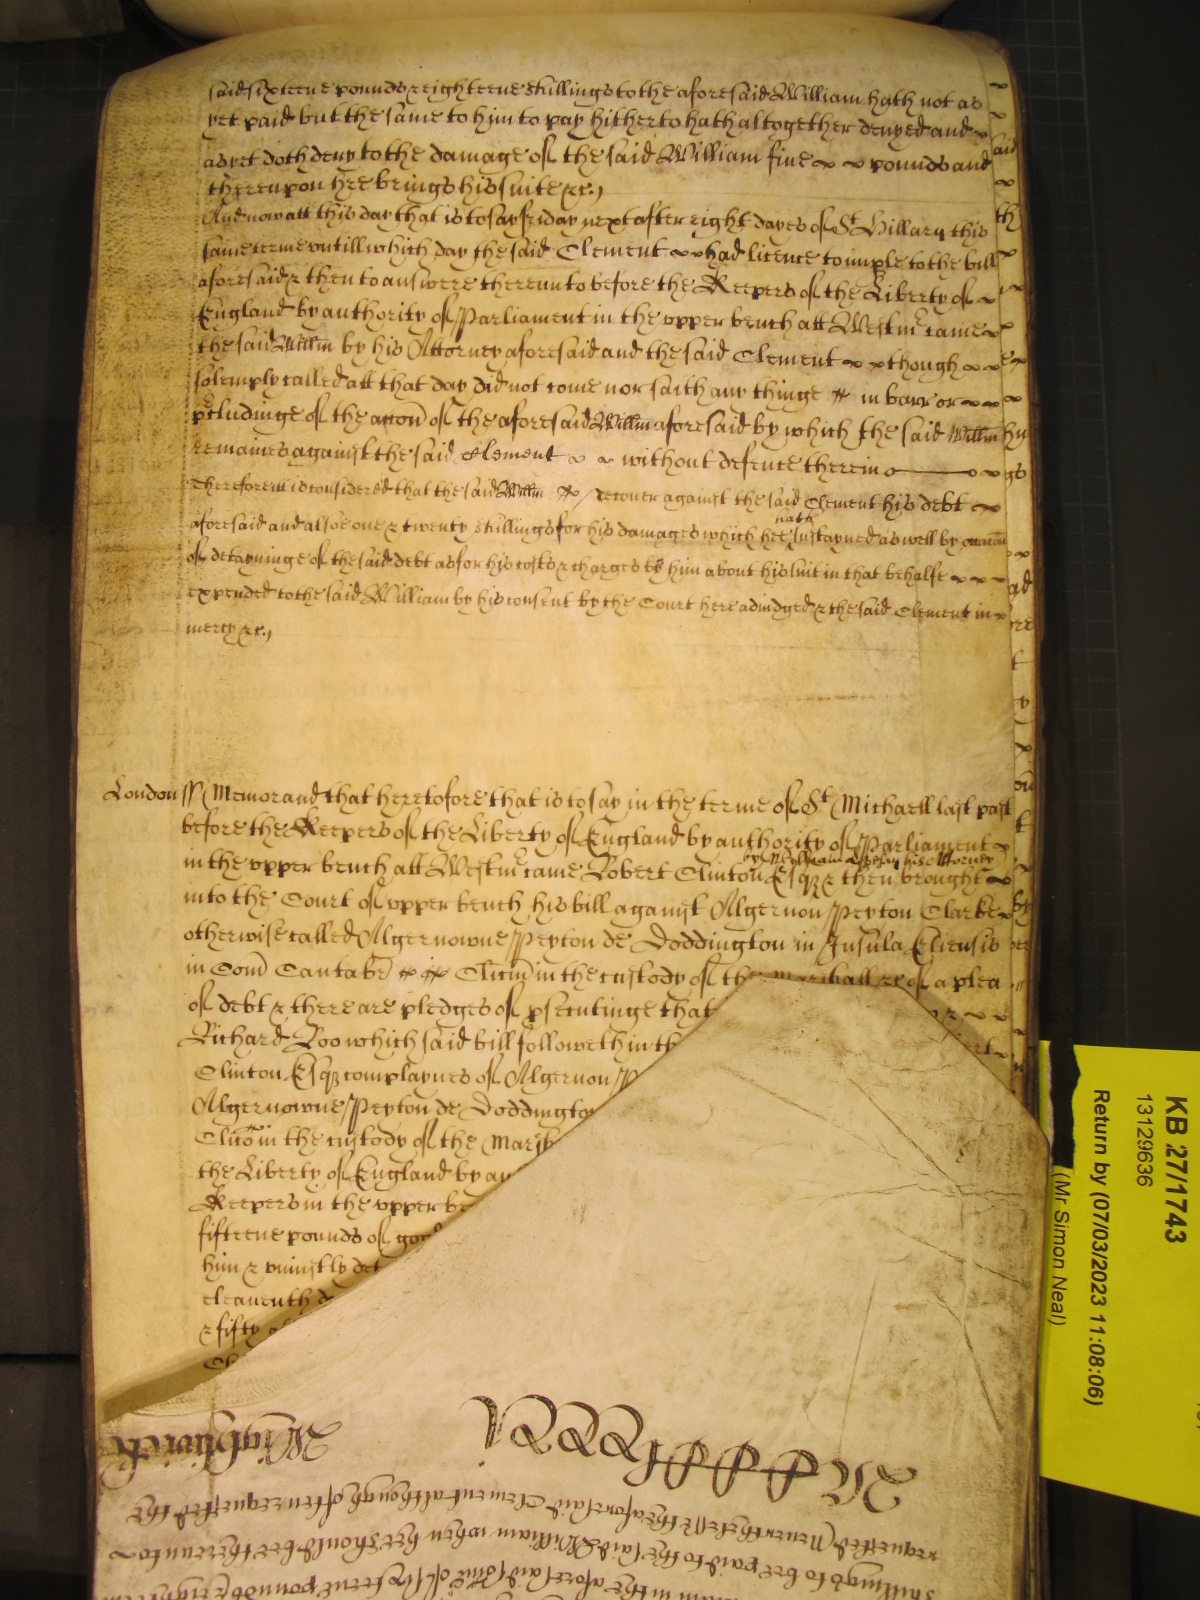 said sixteene pounds & eighteene shillings to the aforesaid William hath not as
yet paid but the same to him to pay hitherto hath altogether denyed and
as yet doth deny to the damage of the said William five pounds and
thereupon hee brings his suite &c.,
And now att this day that is to say friday next after eight dayes of St Hillary this
same terme untill which day the said Clement had licence to imple to the bill
aforesaid & then to answere thereunto before the Keepers of the Liberty of
England by authority of Parliament in the upper bench att Westmr came
the said Willm by his Attorney aforesaid and the said Clement though
solemply called att that day did not come nor saith any thinge in barr or
pcludinge of the accon of the aforesaid Willm aforesaid by which the said Willm
remaines against the said Clement without defence therein
Therefore it is considered that the said Willm recover against the said Clement his debt
aforesaid and alsoe one & twenty shillings for his damages which hee hath sustayned as well by occacon
of detayninge of the said debt as for his costs & charges by him about his suit in that behalfe
expended to the said William by his consent by the Court here adiudged & the said Clement in
mercy &c.,
London ss Memorand that heretofore that is to say in the terme of St Michaell last past
before the Keepers of the Liberty of England by authority of Parliament
in the upper bench att Westmr came Robert Clinton Esqz by William his Attorney & then brought
into the Court of upper bench his bill against Algernon Peyton Clarke
otherwise called Algernowne Peyton de Doddington in Insula Eliensis
in Com Cantabr Clicum in the custody of the marshall &c of a plea
of debt & there are pledges of psecutinge that
Richard Roo which said bill followeth in th
Clinton Esqz complaynes of Algernon P
Algernowne Peyton de Doddingto
Clicu in the custody of the Marsh
the Liberty of England by au
Keepers in the upper be
fifteene pounds of good
him & uniustly det
eleaventh d
& fifty a
KB 27/1743
13129636
Return by (07/03/2023 11:08:06)
(Mr Simon Neal)
Wightwick
requested Neverthelesse the aforesaid Clement although often requested the
shillings to bee paid to the said William when hee should bee thereunto
in the aforesaid sume of sixteene pounds & eighteene